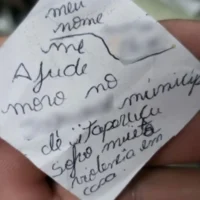 meu
nome
me
Ajude
moro no municip
de itaparica
sofro muita
violencia em
casa